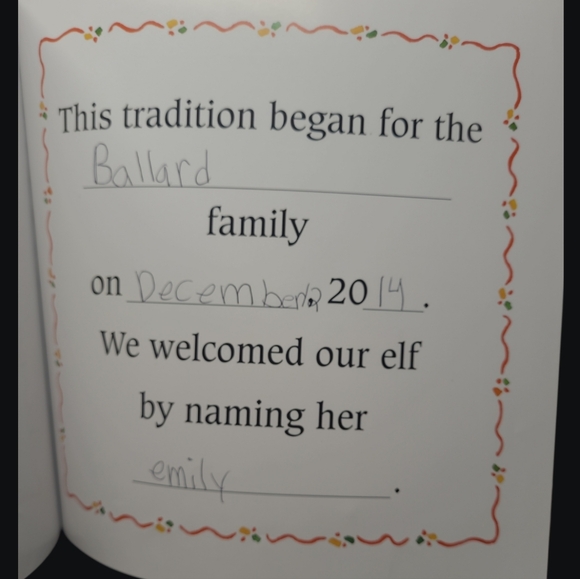 This tradition began for the
Ballard
family
on December 2014.
We welcomed our elf
by naming her
emily.